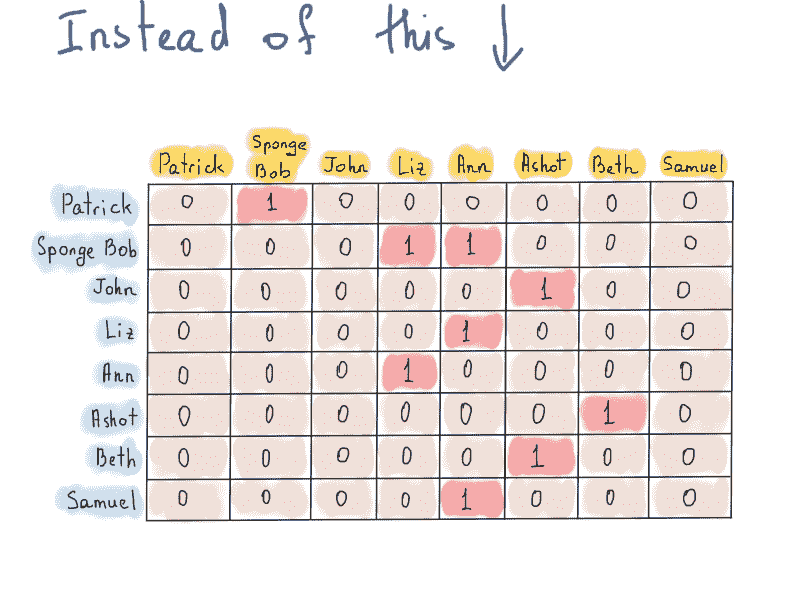 Instead of this ↓
Patrick Sponge Bob John Liz Ann Ashot Beth Samuel
Patrick 0 1 0 0 0 0 0 0
Sponge Bob 0 0 0 1 1 0 0 0
John 0 0 0 0 0 1 0 0
Liz 0 0 0 0 1 0 0 0
Ann 0 0 0 1 0 0 0 0
Ashot 0 0 0 0 0 0 1 0
Beth 0 0 0 0 0 1 0 0
Samuel 0 0 0 0 1 0 0 0